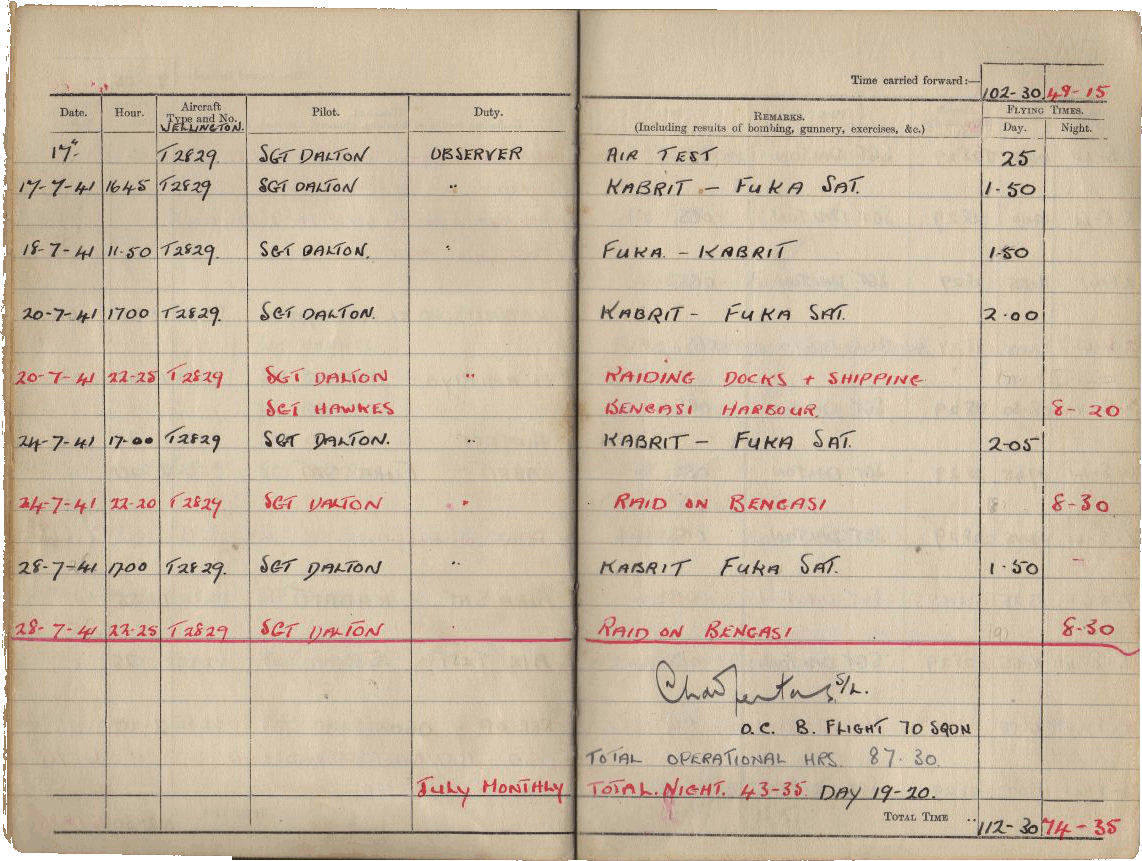 Time carried forward:— 102-30 49-15
Date. Hour. Aircraft Type and No. Pilot. Duty. REMARKS. (Including results of bombing, gunnery, exercises, &c.) FLYING TIMES. Day. Night.
WELLINGTON.
17" T2829. SGT DALTON OBSERVER AIR TEST 25
17-7-41 1645 T2829 SGT DALTON " KABRIT - FUKA SAT. 1-50
18-7-41 11-50 T2829. SGT DALTON. " FUKA - KABRIT 1-50
20-7-41 1700 T2829. SGT DALTON. KABRIT - FUKA SAT. 2-00
20-7-41 22-25 T2829 SGT DALTON " RAIDING DOCKS + SHIPPING
SGT HAWKES BENGASI HARBOUR. 8-20
24-7-41 17-00 T2829 SGT DALTON. " KABRIT - FUKA SAT. 2-05
24-7-41 22-20 T2829 SGT DALTON " RAID ON BENGASI 8-30
28-7-41 1700 T2829. SGT DALTON " KABRIT FUKA SAT. 1-50
28-7-41 22-25 T2829 SGT DALTON RAID ON BENGASI 8-30
S/L.
O.C. B. FLIGHT 70 SQDN
TOTAL OPERATIONAL HRS. 87-30.
JULY MONTHLY TOTAL. NIGHT. 43-35 DAY 19-20.
TOTAL TIME .. 112-30 74-35